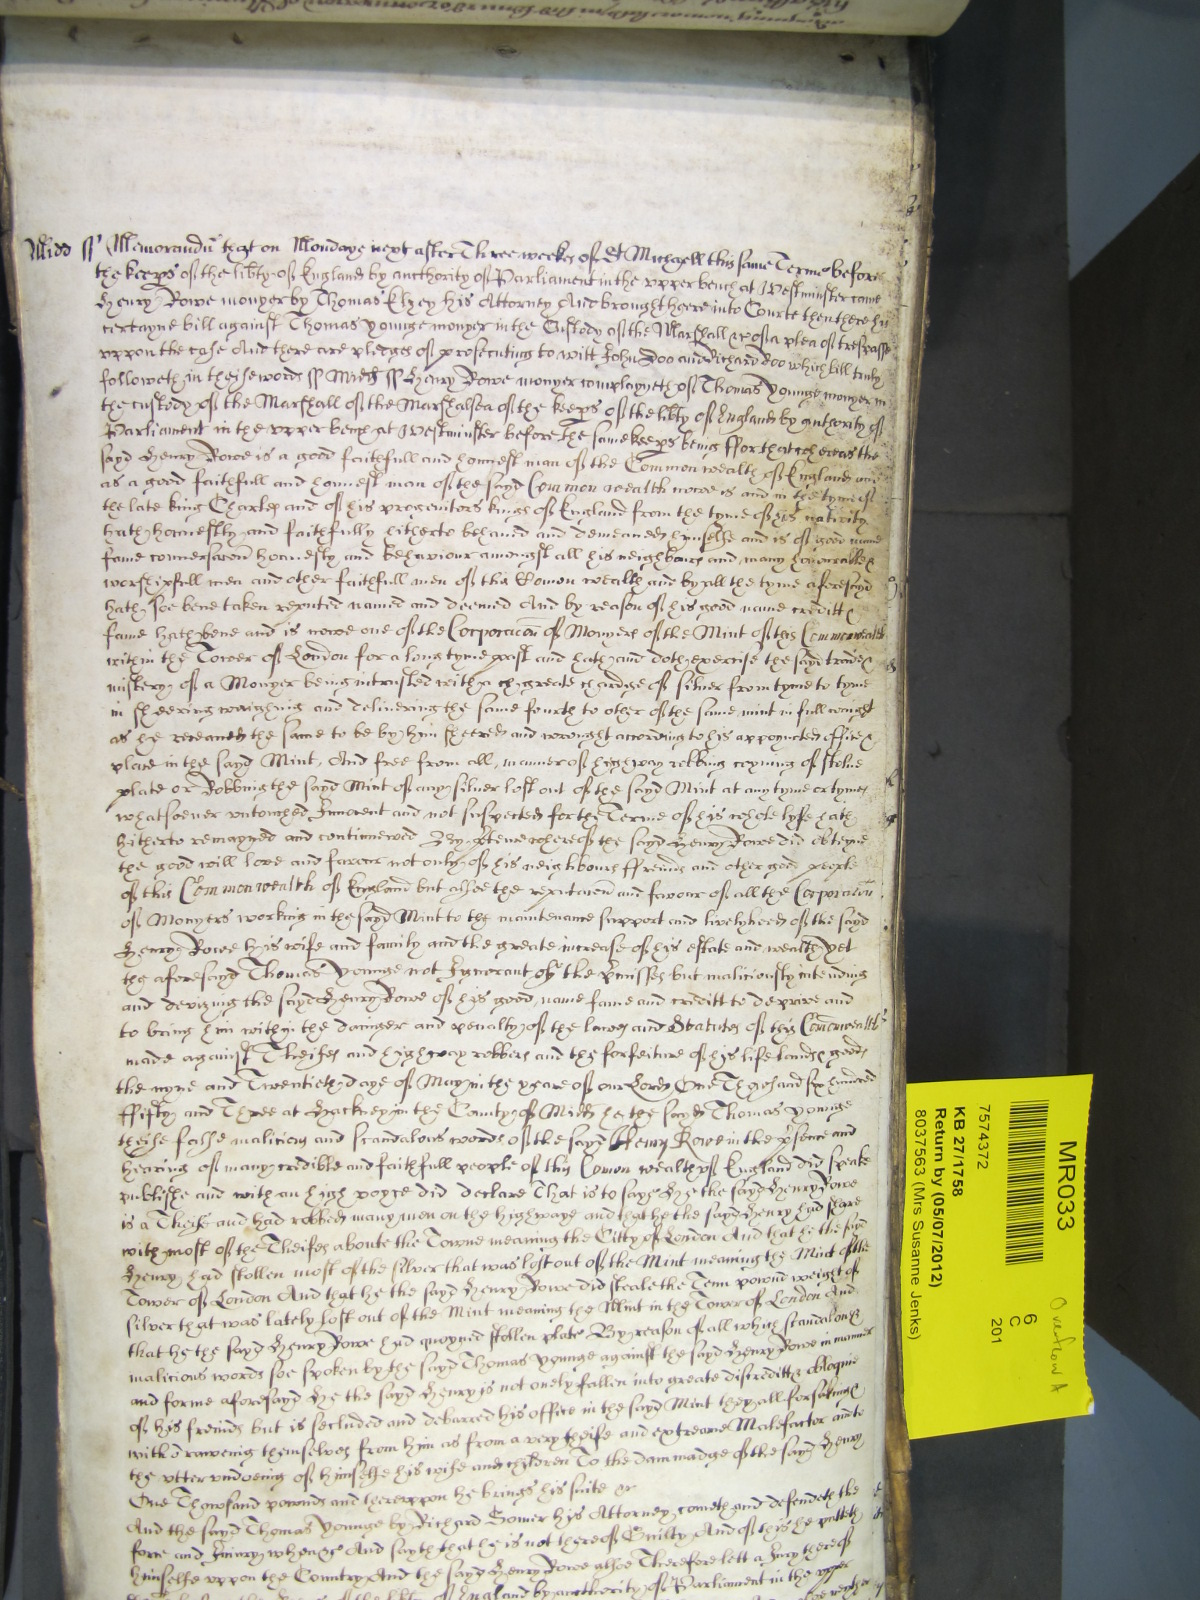 Midd ss Memorandu' that on Mondaye next after Three weekes of St Michaell this same Terme before
the keeps of the libty of England by authority of Parliament in the vpper bench at Westminster came
Henry Rowe monyer by Thomas Elzey his Attorney And brought heere into Courte then there his
certayne bill against Thomas Younge monyer in the Custody of the Marshall &c of a plea of trespasse
vppon the case And there are pledges of prosecuting to witt John Doo and Richard Roo which bill truly
followeth in theise words ss Midd ss Henry Rowe monyer complayneth of Thomas Younge monyer in
the custody of the Marshall of the Marshalsea of the keeps of the libty of England by authority of
Parliament in the vpper bench at Westminster before the same keeps being ffor that whereas the
sayd Henry Rowe is a good faithfull and honnest man of the Common wealth of England and
as a good faithfull and honnest man of the sayd Common wealth nowe is and in the tyme of
the late king Charles and of his progenitors kings of England from the tyme of his nativity
hath honnestly and faithfully hitherto behaued and demeaned himselfe and is of good name
fame conversacon honnesty and behaviour amongst all his neighbours and many honourable &
worshipfull men and other faithfull men of this Comon wealth and by all the tyme aforesayd
hath soe bene taken reputed named and deemed And by reason of his good name creditt &
fame hath bene and is nowe one of the Corporacon of Monyers of the Mint of this Commonwealth
within the Tower of London for a long tyme past and hath and doth exercise the sayd trade &
mistery of a Monyer being intrusted with a greate chardge of silver from tyme to tyme
in sheering weighing and delivering the same fourth to other of the same mint in full weight
as he receaved the same to be by him sheered and wrought according to his appoynted office &
place in the sayd Mint, And free from all manner of highway robbing coyning of stolne
plate or Robbing the sayd Mint of any silver lost out of the sayd Mint at any tyme or tymes
whatsoever vntouched Innocent and not suspected for the Terme of his whole lyfe hath
hitherto remayned and continewed By meanes whereof the sayd Henry Rowe did obteyne
the good will love and favour not only of his neighbours ffreinds and other good people
of this Common wealth of England but alsoe the reputacon and favour of all the Corporacon
of Monyers working in the sayd Mint to the maintenance support and livelyhood of the sayd
Henry Rowe his wife and family and the greate increase of his estate and wealth yet
the aforesayd Thomas Younge not Ignorant of the Pmisses but maliciously intending
and devizing the sayd Henry Rowe of his good name fame and creditt to deprive and
to bring him within the dainger and penalty of the lawes and Statutes of this Comonwealth
made against Theifes and highway robbers and the forfeiture of his life lands & goods
the nyne and Twentieth daye of May in the yeare of our Lord One Thousand six hundred
ffifty and Three at Hackney in the County of Midd he the sayd Thomas Younge
theise false malicious and scandalous words of the sayd Henry Rowe in the psence and
hearing of many credible and faithfull people of this Comon wealth of England did speake
publishe and with an high voyce did declare That is to saye He the sayd Henry Rowe
is a Theife and had robbed many men on the highwaye and that he the sayd Henry had share
with most of the Theifes aboute the Towne meaning the Citty of London And that he the sayd
Henry had stollen most of the silver that was lost out of the Mint meaning the Mint of the
Tower of London And that he the sayd Henry Rowe did steale the Tenn pownd weight of
silver that was lately lost out of the Mint meaning the Mint in the Tower of London And
that he the sayd Henry Rowe had quoyned stollen plate By reason of all which scandalous &
malicious words soe spoken by the sayd Thomas Younge against the sayd Henry Rowe in manner
and forme aforesayd He the sayd Henry is not onely fallen into greate discreditt & obloquie
of his freinds but is secluded and debarred his office in the sayd Mint they all forsaking &
withdraweing themselves from him as from a very theife and extreame Malefactor and to
the vtter vndoeing of himselfe his wife and children To the dammadge of the sayd Henry
One Thowsand pownds and therevppon he brings his suite &c
And the sayd Thomas Younge by Richard Gomer his Attorney cometh and defendeth the
force and Iniury when &c And sayth that he is not thereof Guilty And of this he putteth
himselfe vppon the Country And the sayd Henry Rowe alsoe Therefore lett a Jury thereof
of England by authority of Parliament in the vpper
MR033
6
C
201
Overflow A
7574372
KB 27/1758
Return by (05/07/2012)
8037563 (Mrs Susanne Jenks)